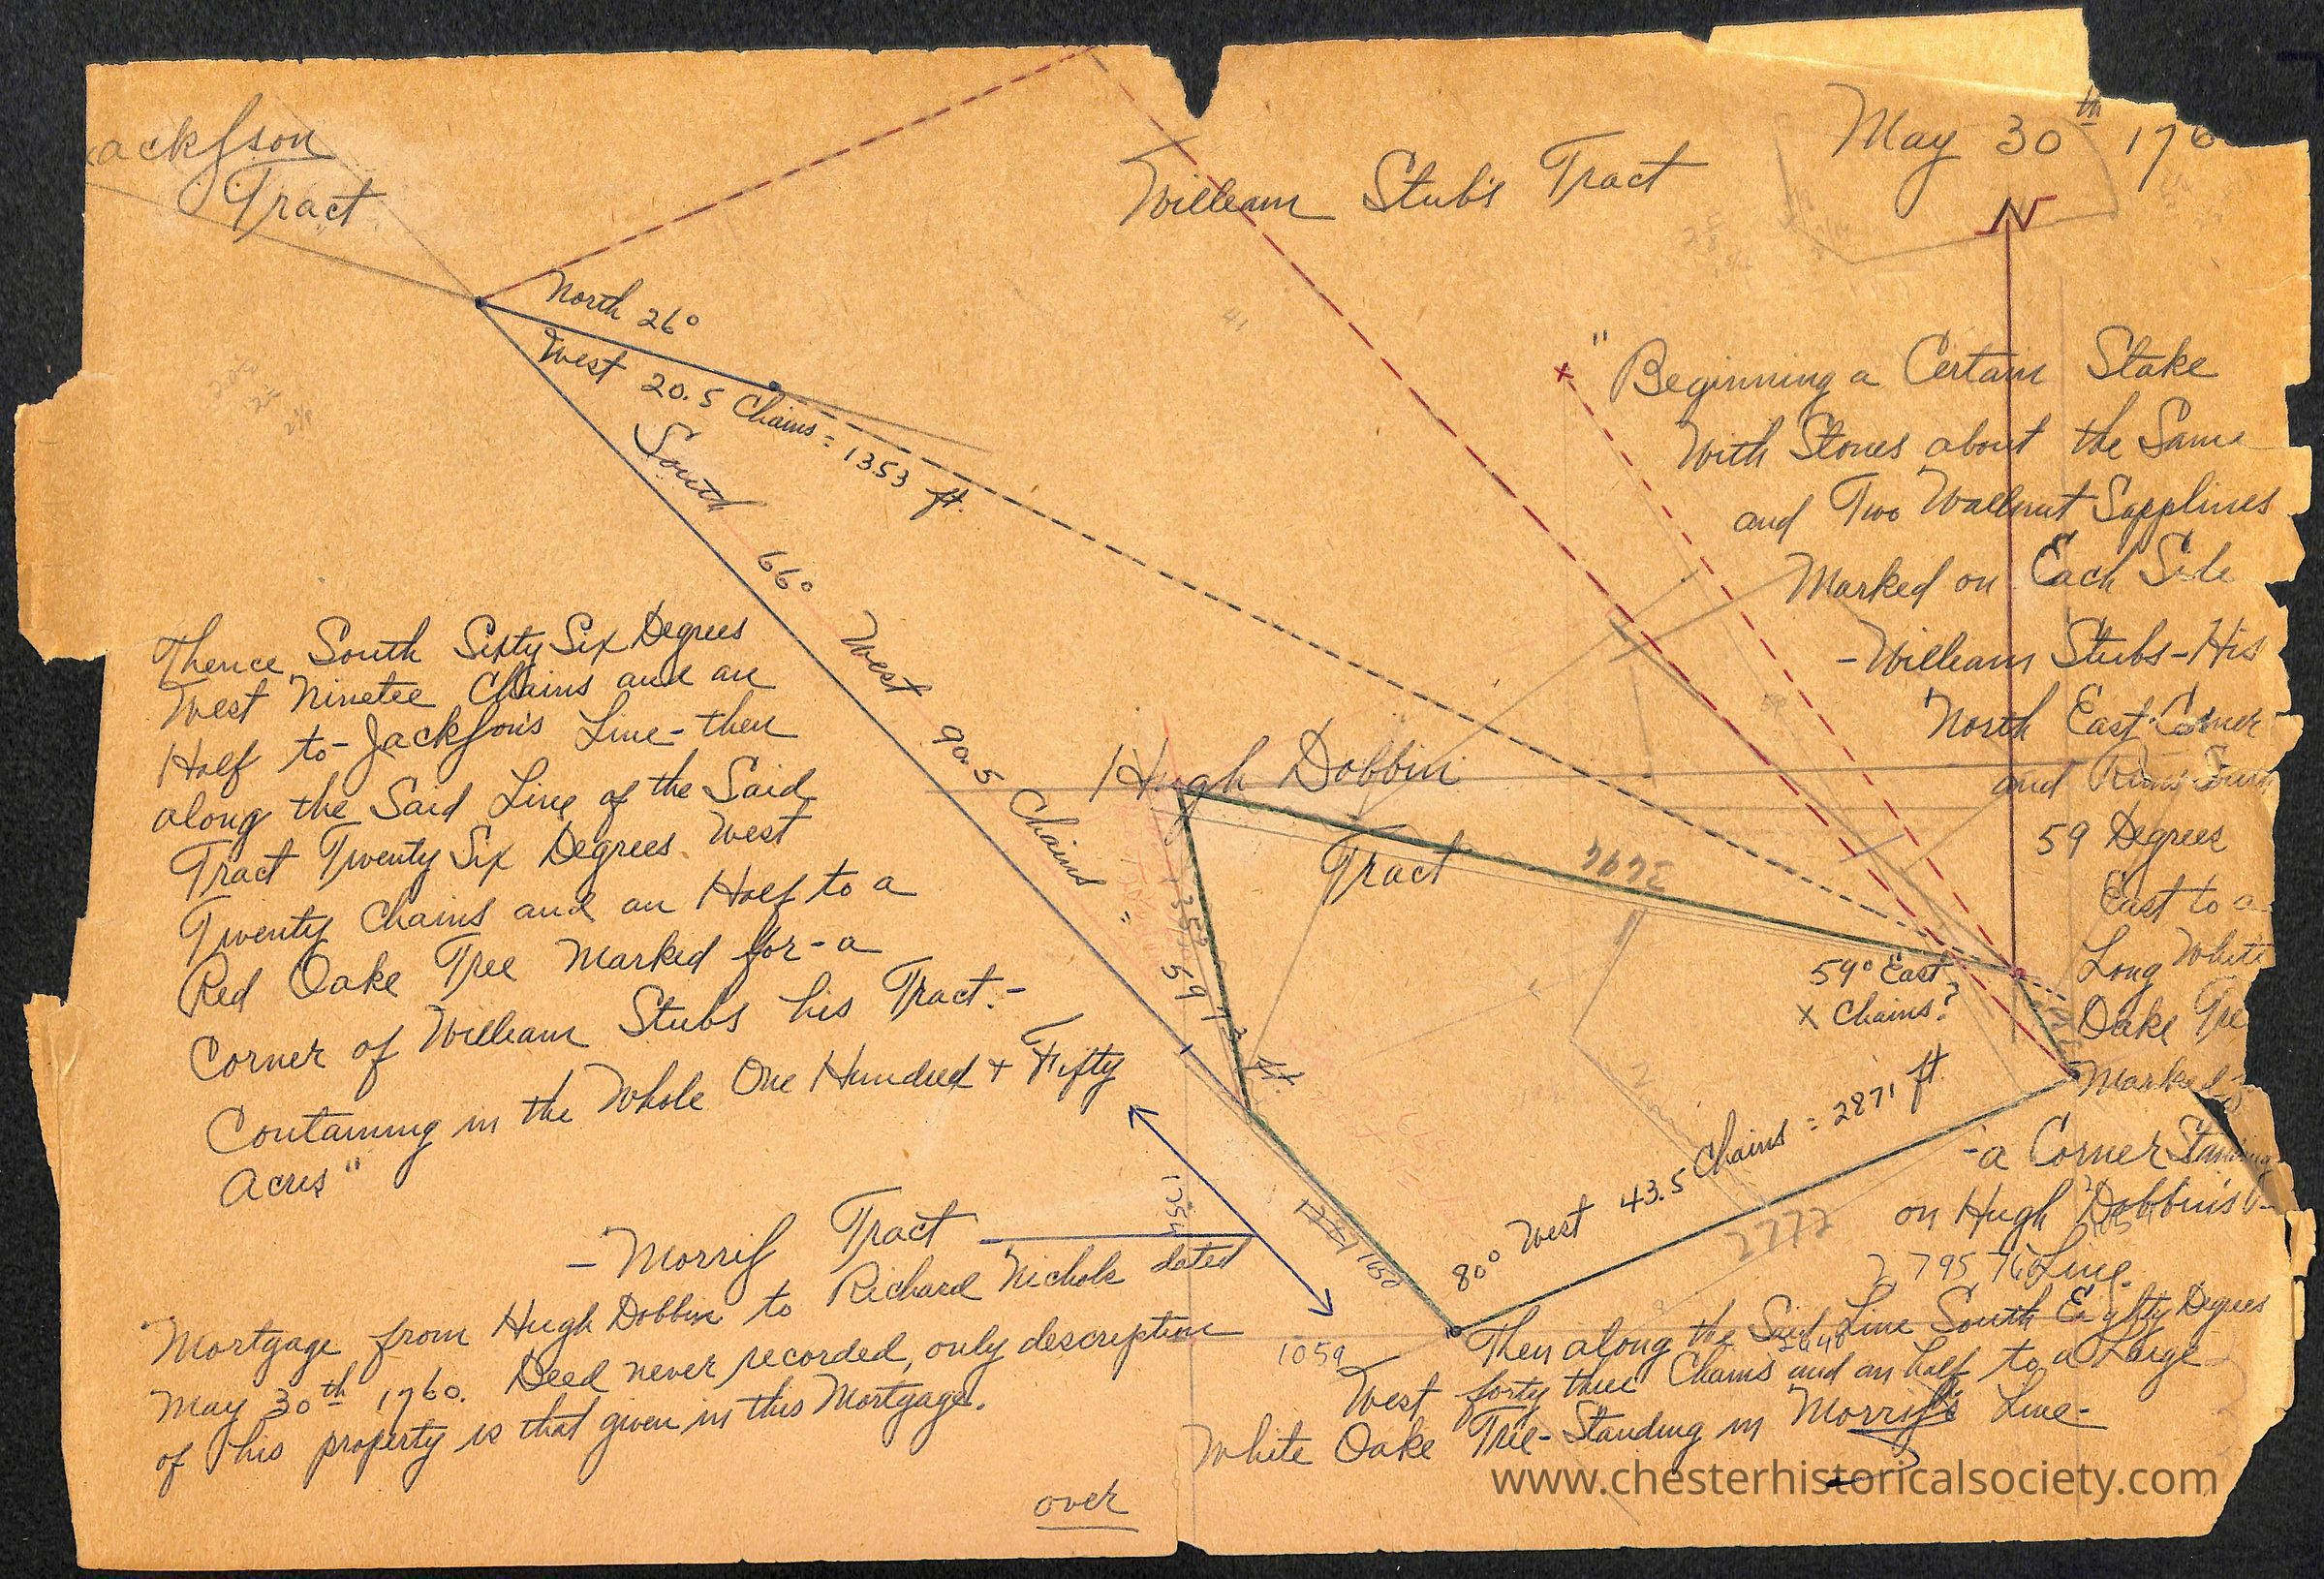 ackſson
Tract
William Stubs Tract
May 30th 176
N
North 26°
West 20.5 Chains = 1353 ft.
South 66° West 90.5 Chains "
"Beginning a Certain Stake
With Stones about the Same
and Two Wallnut Sapplines
Marked on Each Side
-William Stubs-His
North East Corner
and Runs South
59 Degrees
East to a
Long White
Oake Tre
Marked
-a Corner Standing
on Hugh Dobbin's
Line.
Then along the Said Line South Eighty Degrees
West forty three Chains and an half to a Large
White Oake Tree-Standing in Morriſs Line-
Thence South Sixty Six Degrees
West Ninetee Chains and an
Half to-Jackſon's Line-then
along the Said Line of the Said
Tract Twenty Six Degrees West
Twenty Chains and an Half to a
Red Oake Tree Marked for-a
Corner of William Stubs his Tract.-
Containing in the Whole One Hundred + Fifty
Acres"
Hugh Dobbin
Tract
3494
59° East
x Chains?
80° West 43.5 Chains = 2871 ft.
2772
1254
1059
-Morriſ Tract
Mortgage from Hugh Dobbin to Richard Nichols dated
May 30th 1760. Deed never recorded, only description
of his property is that given in this Mortgage.
over
www.chesterhistoricalsociety.com